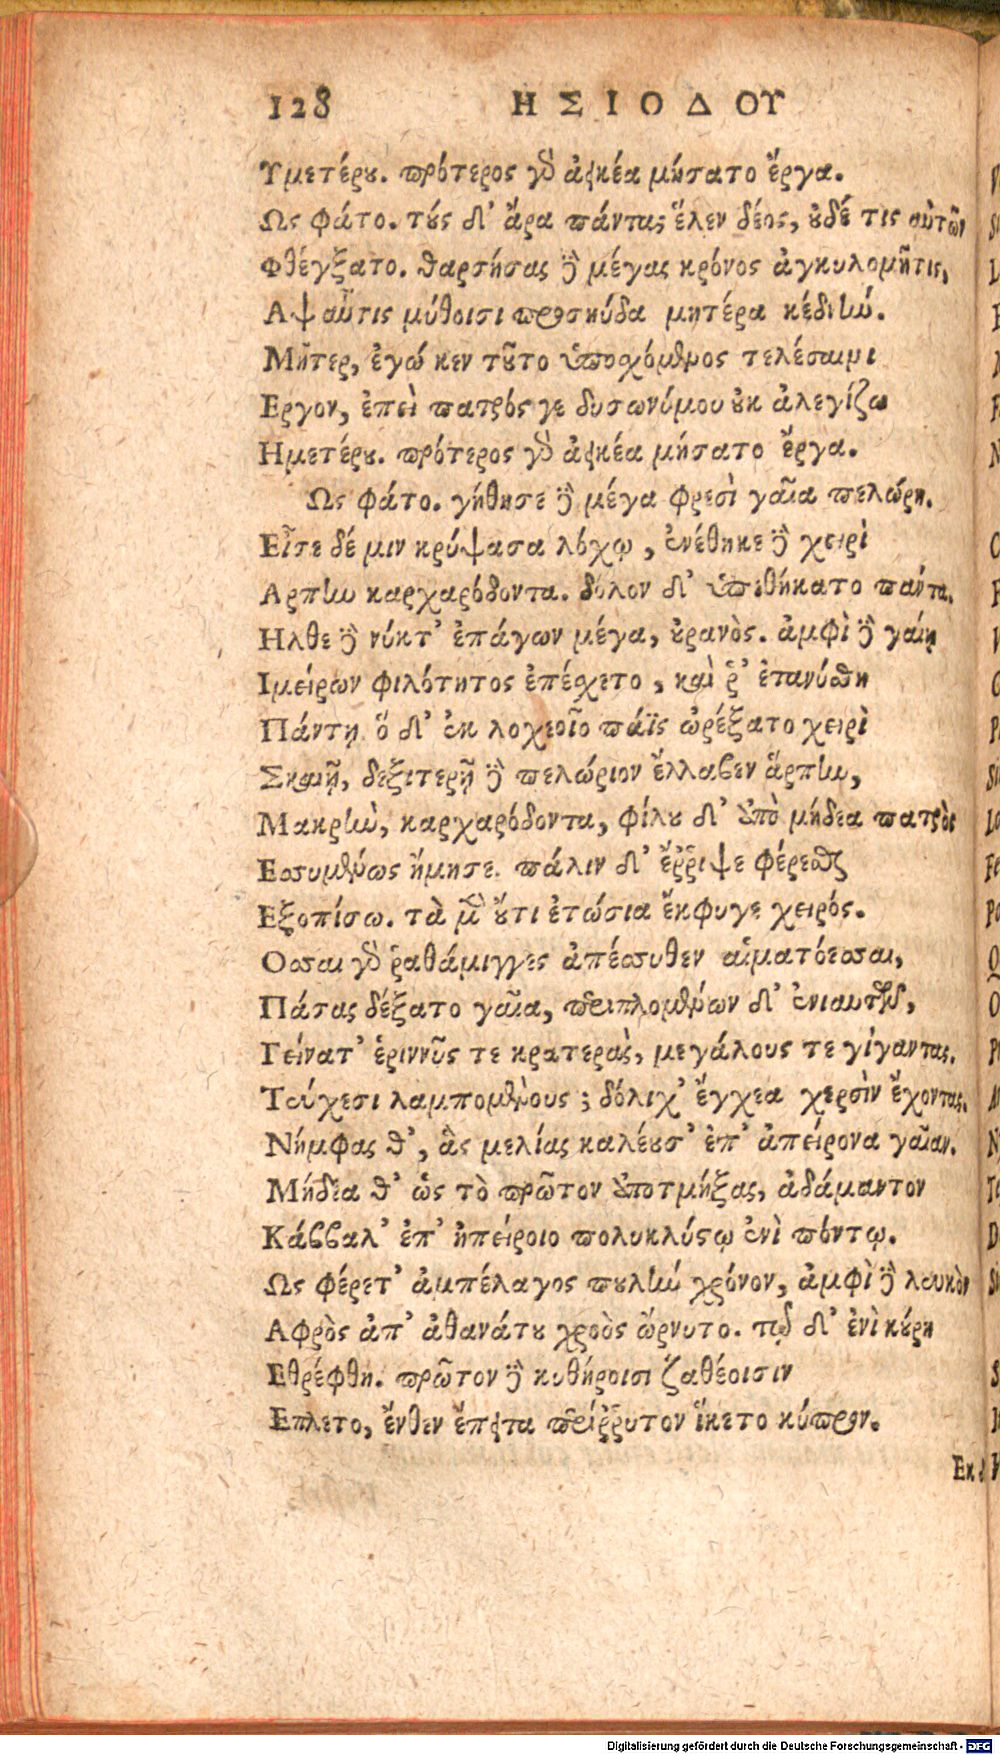 128 ΗΣΙΟΔΟΥ
Υμετέρου. πρότερος γὸ ἀεικέα μήσατο ἔργα.
Ως φάτο. τοὺς δ' ἄρα πάντας ἕλεν δέος, οὐδέ τις αὐτῶν
Φθέγξατο. θαρσήσας δὲ μέγας κρόνος ἀγκυλομῆτις,
Αψ αὖτις μύθοισι προσηύδα μητέρα κεδνήν.
Μῆτερ, ἐγώ κεν τοῦτο ὑποσχόμενος τελέσαιμι
Εργον, ἐπεὶ πατρός γε δυσωνύμου οὐκ ἀλεγίζω
Ημετέρου. πρότερος γὸ ἀεικέα μήσατο ἔργα.
Ως φάτο. γήθησε δὲ μέγα φρεσὶ γαῖα πελώρη.
Εἷσε δέ μιν κρύψασα λόχῳ, ἐνέθηκε δὲ χειρὶ
Αρπην καρχαρόδοντα. δόλον δ' ὑπεθήκατο πάντα.
Ηλθε δὲ νύκτ' ἐπάγων μέγα, οὐρανὸς. ἀμφὶ δὲ γαίῃ
Ιμείρων φιλότητος ἐπέσχετο, καὶ ῥ' ἐτανύσθη
Πάντῃ ὅ δ' ἐκ λοχεοῖο πάϊς ὠρέξατο χειρὶ
Σκαιῇ, δεξιτερῇ δὲ πελώριον ἔλλαβεν ἅρπην,
Μακρὴν, καρχαρόδοντα, φίλου δ' ἀπὸ μήδεα πατρὸς
Εσσυμένως ἤμησε. πάλιν δ' ἔῤῥιψε φέρεσθαι
Εξοπίσω. τὰ μὲν οὔτι ἐτώσια ἔκφυγε χειρός.
Οσσαι γὸ ῥαθάμιγγες ἀπέσσυθεν αἱματόεσσαι,
Πάσας δέξατο γαῖα, περιπλομένων δ' ἐνιαυτῶν,
Γείνατ' ἐριννῦς τε κρατερὰς, μεγάλους τε γίγαντας.
Τεύχεσι λαμπομένους ; δόλιχ' ἔγχεα χερσὶν ἔχοντας.
Νήμφας θ', ἃς μελίας καλέουσ' ἐπ' ἀπείρονα γαῖαν.
Μήδεα θ' ὡς τὸ πρῶτον ἀποτμήξας, ἀδάμαντον
Κάββαλ' ἐπ' ἠπείροιο πολυκλύστῳ ἐνὶ πόντῳ.
Ως φέρετ' ἀμπέλαγος πουλὺν χρόνον, ἀμφὶ δὲ λευκὸν
Αφρὸς ἀπ' ἀθανάτου χροὸς ὤρνυτο. τῷ δ' ἐνὶ κούρη
Εθρέφθη. πρῶτον δὲ κυθήροισι ζαθέοισιν
Επλετο, ἔνθεν ἔπειτα περίῤῥυτον ἵκετο κύπρον.
Εκ δ'
Digitalisierung gefördert durch die Deutsche Forschungsgemeinschaft - DFG